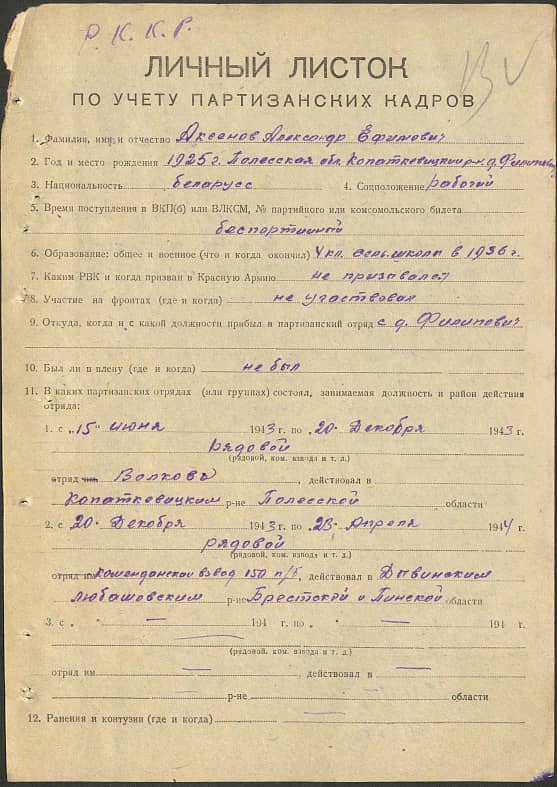 Р. К. К. Р.
ЛИЧНЫЙ ЛИСТОК
ПО УЧЕТУ ПАРТИЗАНСКИХ КАДРОВ
1. Фамилия, имя и отчество Аксенов Александр Ефимович
2. Год и место рождения 1925 г. Полесская обл. Копаткевицкий р-н д. Филипович
3. Национальность беларусс 4. Соцположение рабочий
5. Время поступления в ВКП(б) или ВЛКСМ, № партийного или комсомольского билета
беспортийный
6. Образование: общее и военное (что и когда окончил) 4 кл. сель.школы в 1936 г.
7. Каким РВК и когда призван в Красную Армию не призывался
8. Участие на фронтах (где и когда) не участвовал
9. Откуда, когда и с какой должности прибыл в партизанский отряд с д. Филипович
10. Был ли в плену (где и когда) не был
11. В каких партизанских отрядах (или группах) состоял, занимаемая должность и район действия
отряда:
1. с „15" июня 1943 г. по 20. Декабря 1943 г.
рядовой
(рядовой, ком. взвода и т. д.)
отряд им. Волкова, действовал в
Копаткевицким р-не Полесской области
2. с 20. Декабря 1943 г. по 23. Апреля 1944 г.
рядовой
(рядовой, ком. взвода и т. д.)
отряд им. комендански взвод 150 п/б, действовал в
любашовским р-не Брестской и Пинской области
3. с „ " — 194 г. по „ " — 194 г.
(рядовой, ком. взвода и т. д.)
отряд им. —, действовал в —
— р-не — области
12. Ранения и контузии (где и когда) —